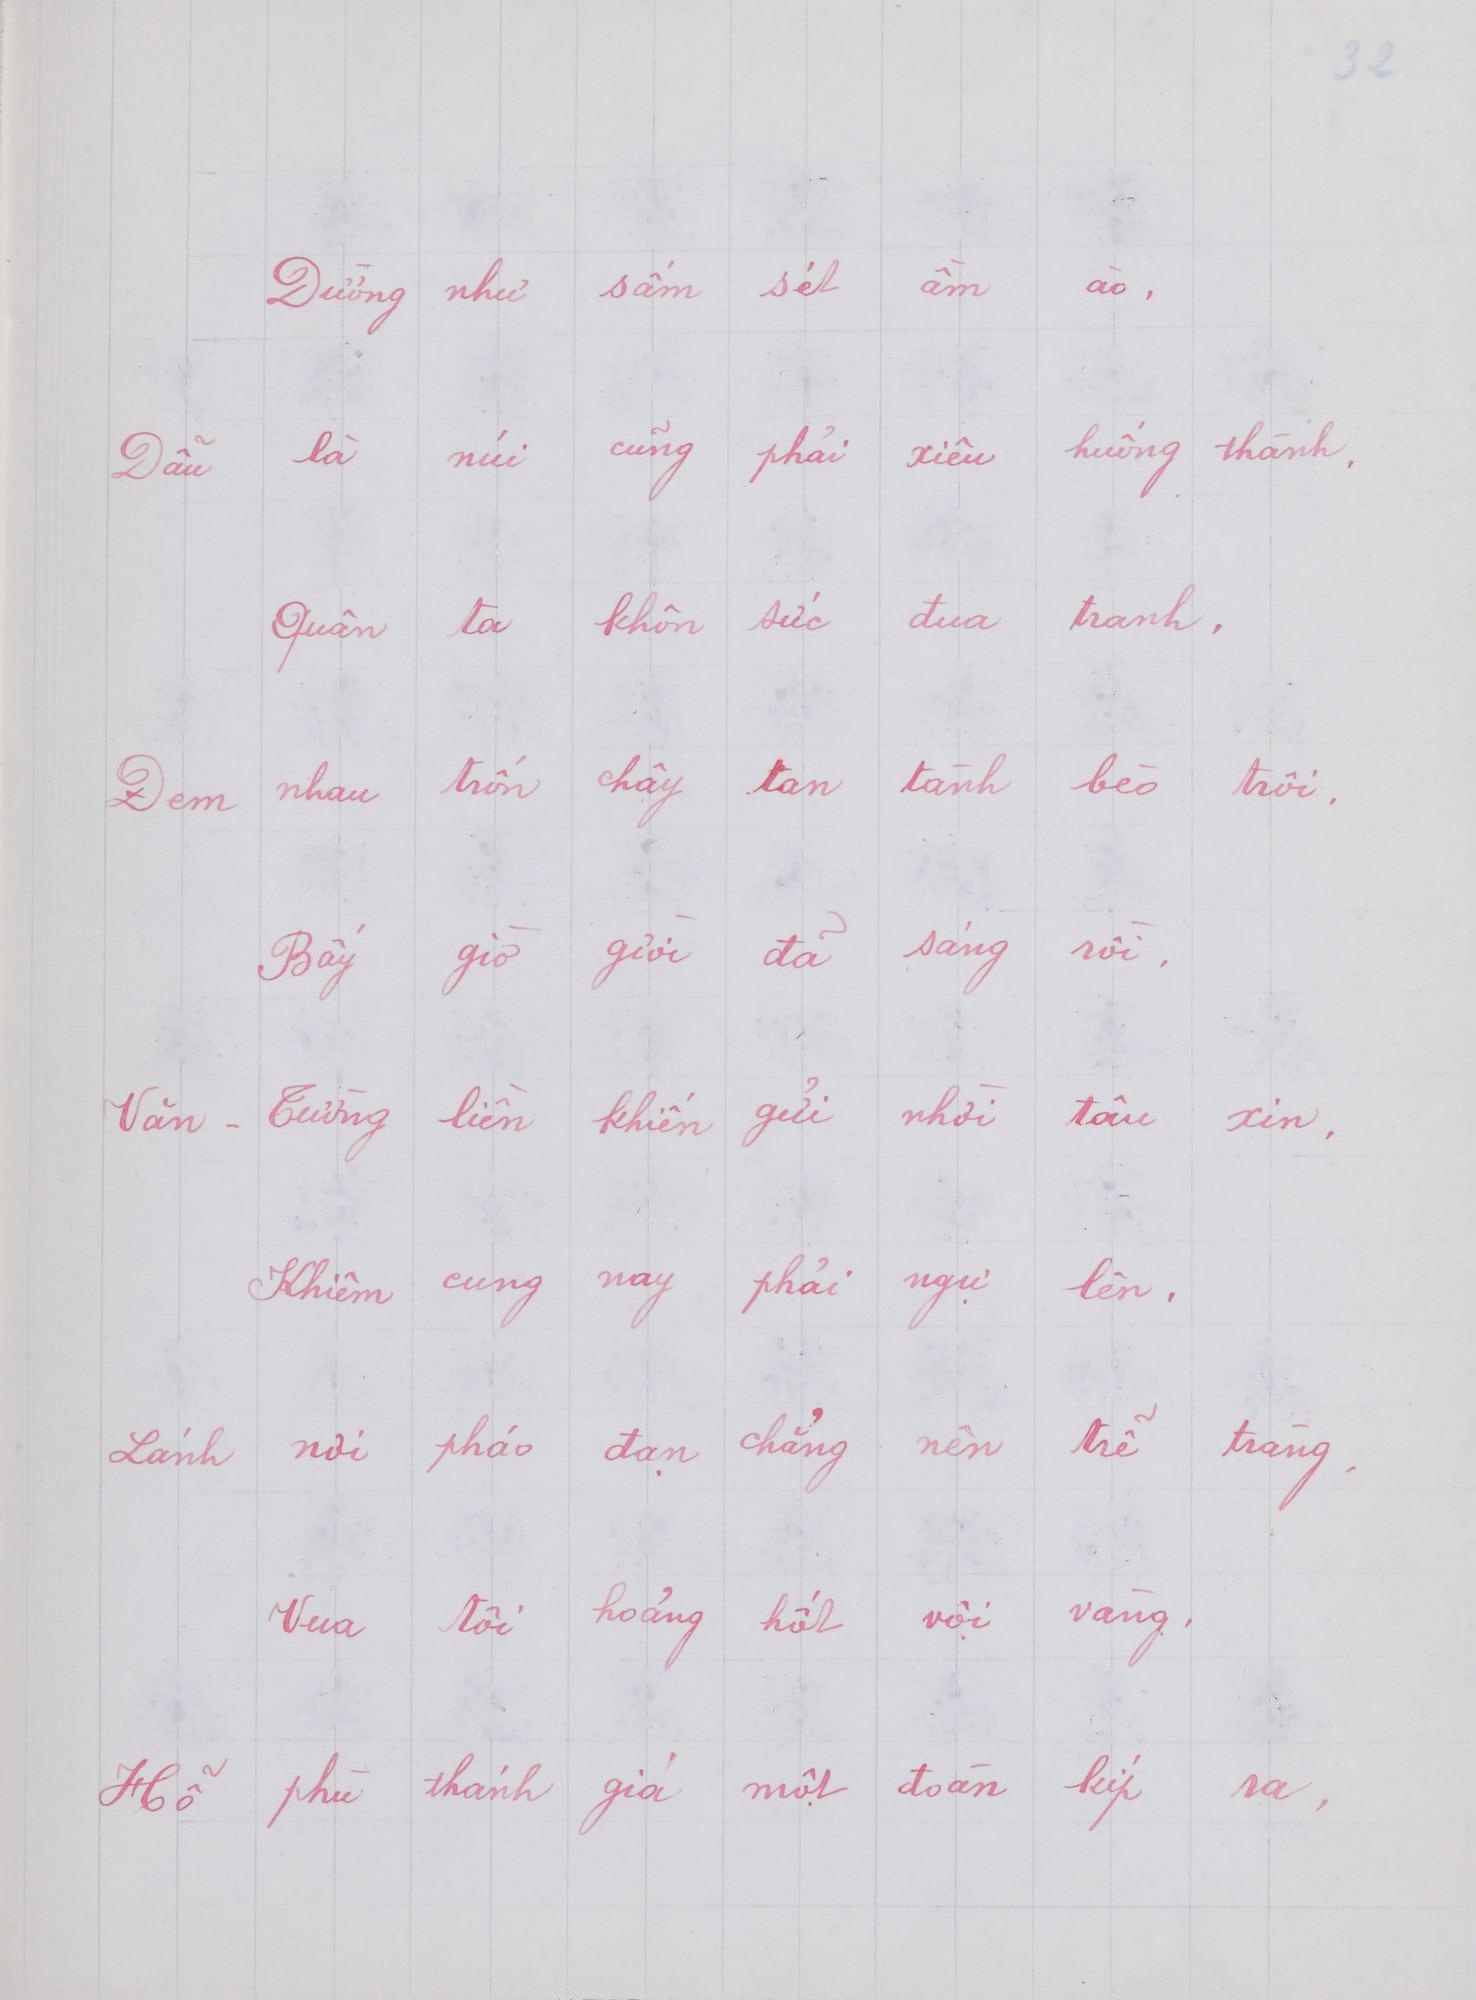 32
Dường như sấm sét ầm ào,
Dẫu là núi cũng phải xiêu huống thành,
Quân ta khôn sức đua tranh,
Đem nhau trốn chậy tan tành bèo trôi,
Bấy giờ giời đã sáng rồi,
Văn - Tường liền khiến gửi nhời tâu xin,
Khiêm cung nay phải ngự lên,
Lánh nơi pháo đạn chẳng nên trễ tràng,
Vua tôi hoảng hốt vội vàng,
Hỗ phù thánh giá một đoàn kíp ra,